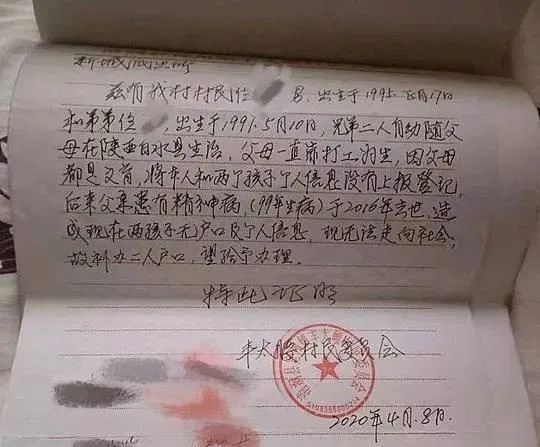 兹有我村村民任 男,出生于1995.5月17日
和弟弟任 ,出生于1991.5月10日,兄弟二人自幼随父
母在陕西白水县生活,父母一直靠打工为生,因父母
都是文盲,将本人和两个孩子个人信息没有上报登记,
后来父亲患有精神病,(99年生病)于2016年去世,造
成现在两孩子无户口及个人信息,现无法走向社会,
故补办二人户口,望给予办理。
特此证明
村民委员会
2020年4月.8日.